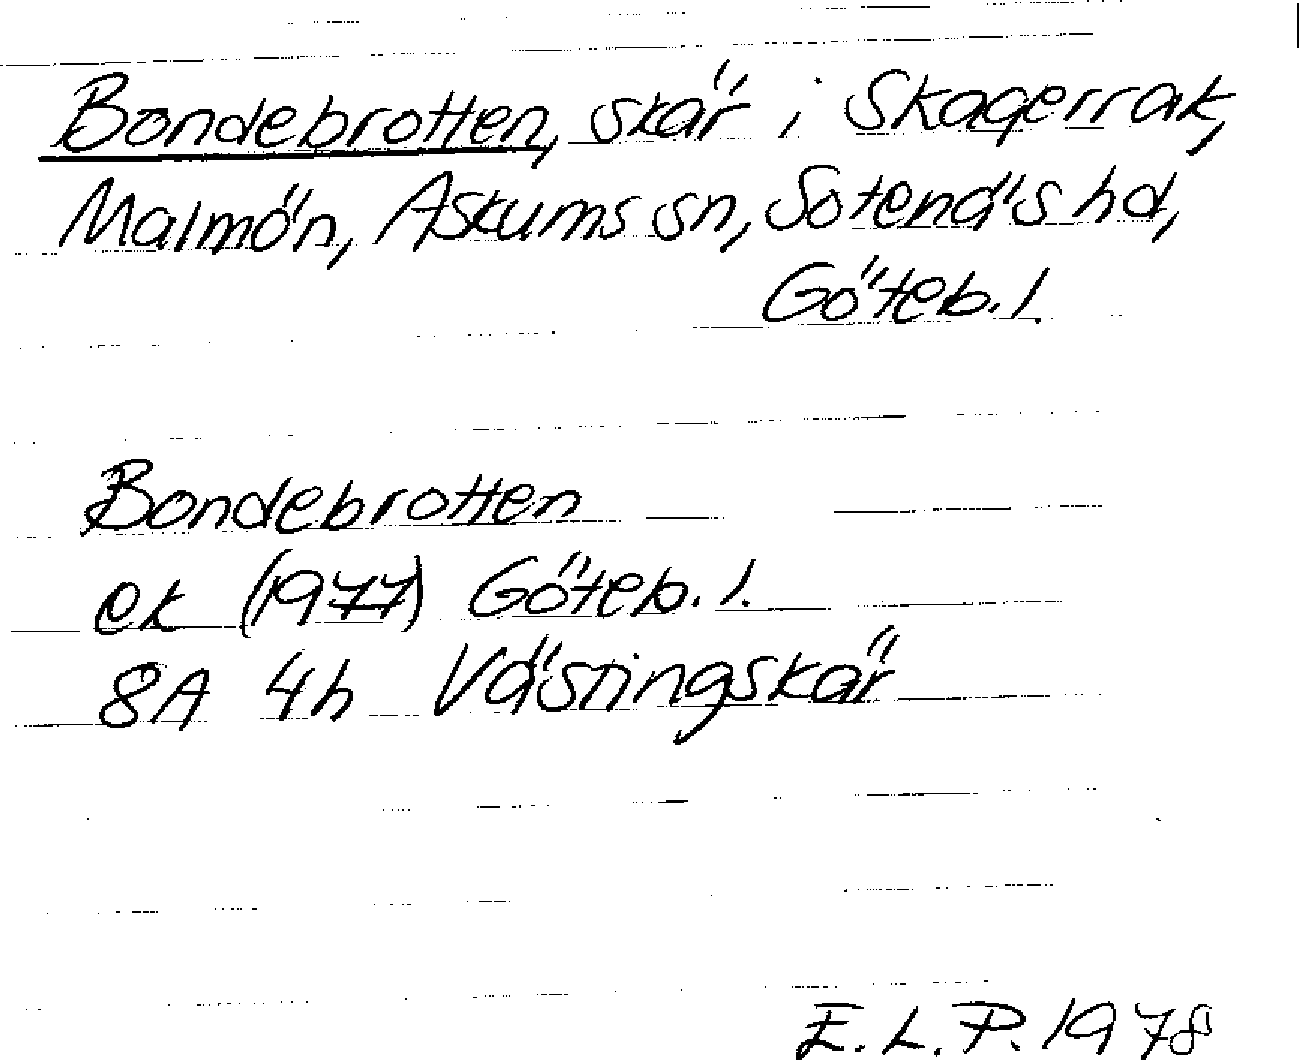 Bondebrotten, skär i Skagerrak,
Malmön, Askums sn, Sotenäs hd,
Göteb. l.
Bondebrotten
ek (1977) Göteb. l.
8A 4h Västingskär
E. L. P. 1978